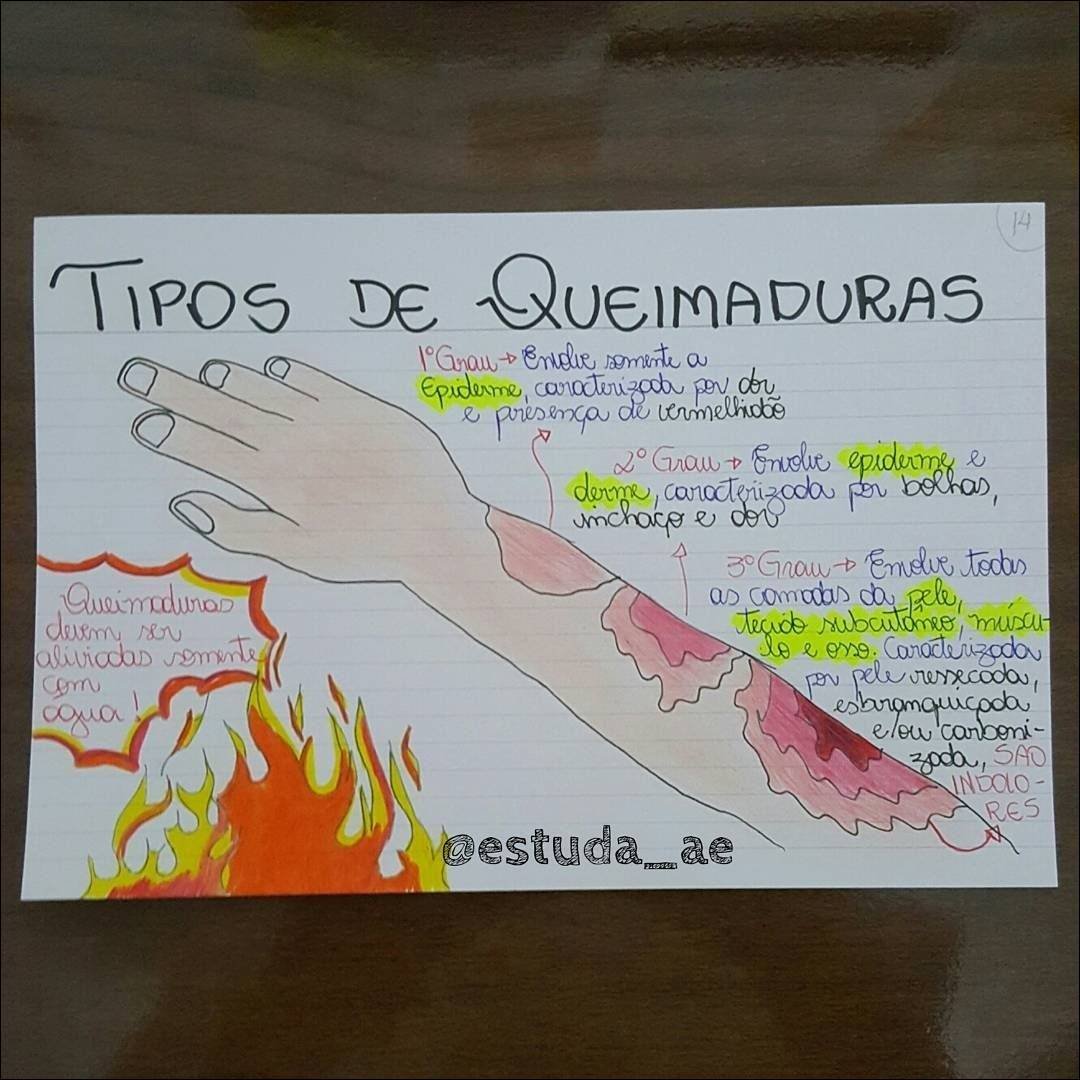 14
TIPOS DE QUEIMADURAS
1º Grau → Envolve somente a
Epiderme, caracterizada por dor
e presença de vermelhidão
2º Grau → Envolve epiderme e
derme, caracteriizada por bolhas,
inchaço e dor
3º Grau → Envolve todas
as camadas da pele,
tecido subcutâneo, múscu-
lo e osso. Caracterizada
por pele ressecada,
esbranquiçada
e/ou carboni-
zada, SÃO
INDOLO-
RES
Queimaduras
devem ser
aliviadas somente
com
água!
@estuda_ae